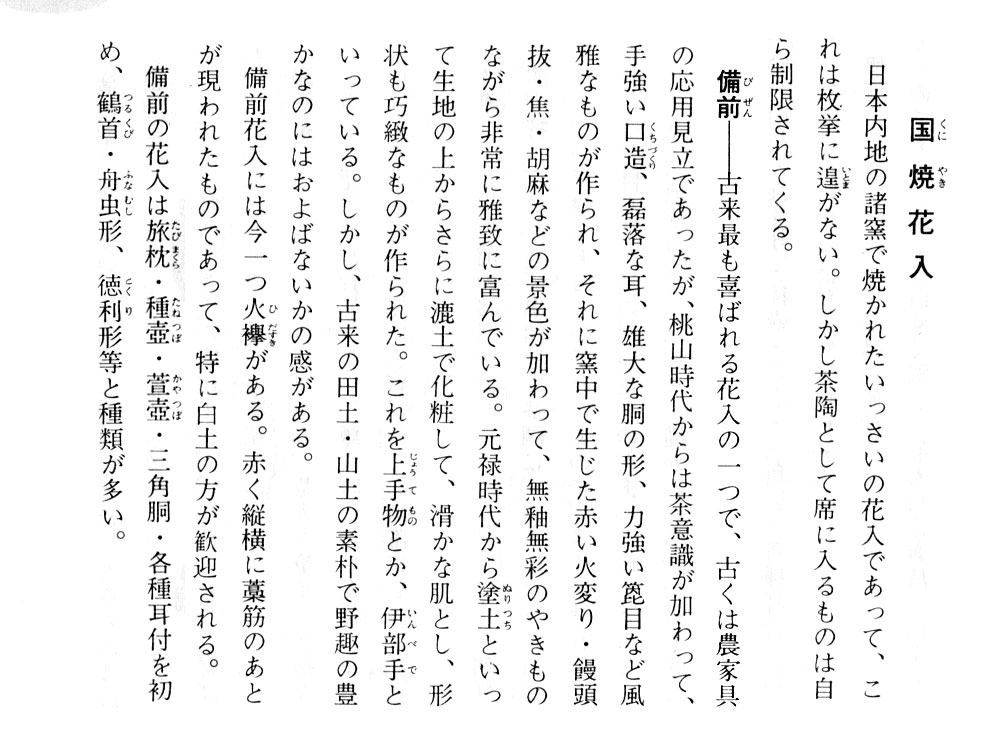 国焼花入
日本内地の諸窯で焼かれたいっさいの花入であって、こ
れは枚挙に遑がない。しかし茶陶として席に入るものは自
ら制限されてくる。
備前――古来最も喜ばれる花入の一つで、古くは農家具
の応用見立であったが、桃山時代からは茶意識が加わって、
手強い口造、磊落な耳、雄大な胴の形、力強い箆目など風
雅なものが作られ、それに窯中で生じた赤い火変り・饅頭
抜・焦・胡麻などの景色が加わって、無釉無彩のやきもの
ながら非常に雅致に富んでいる。元禄時代から塗土といっ
て生地の上からさらに漉土で化粧して、滑かな肌とし、形
状も巧緻なものが作られた。これを上手物とか、伊部手と
いっている。しかし、古来の田土・山土の素朴で野趣の豊
かなのにはおよばないかの感がある。
備前花入には今一つ火襷がある。赤く縦横に藁筋のあと
が現われたものであって、特に白土の方が歓迎される。
備前の花入は旅枕・種壺・萱壺・三角胴・各種耳付を初
め、鶴首・舟虫形、徳利形等と種類が多い。